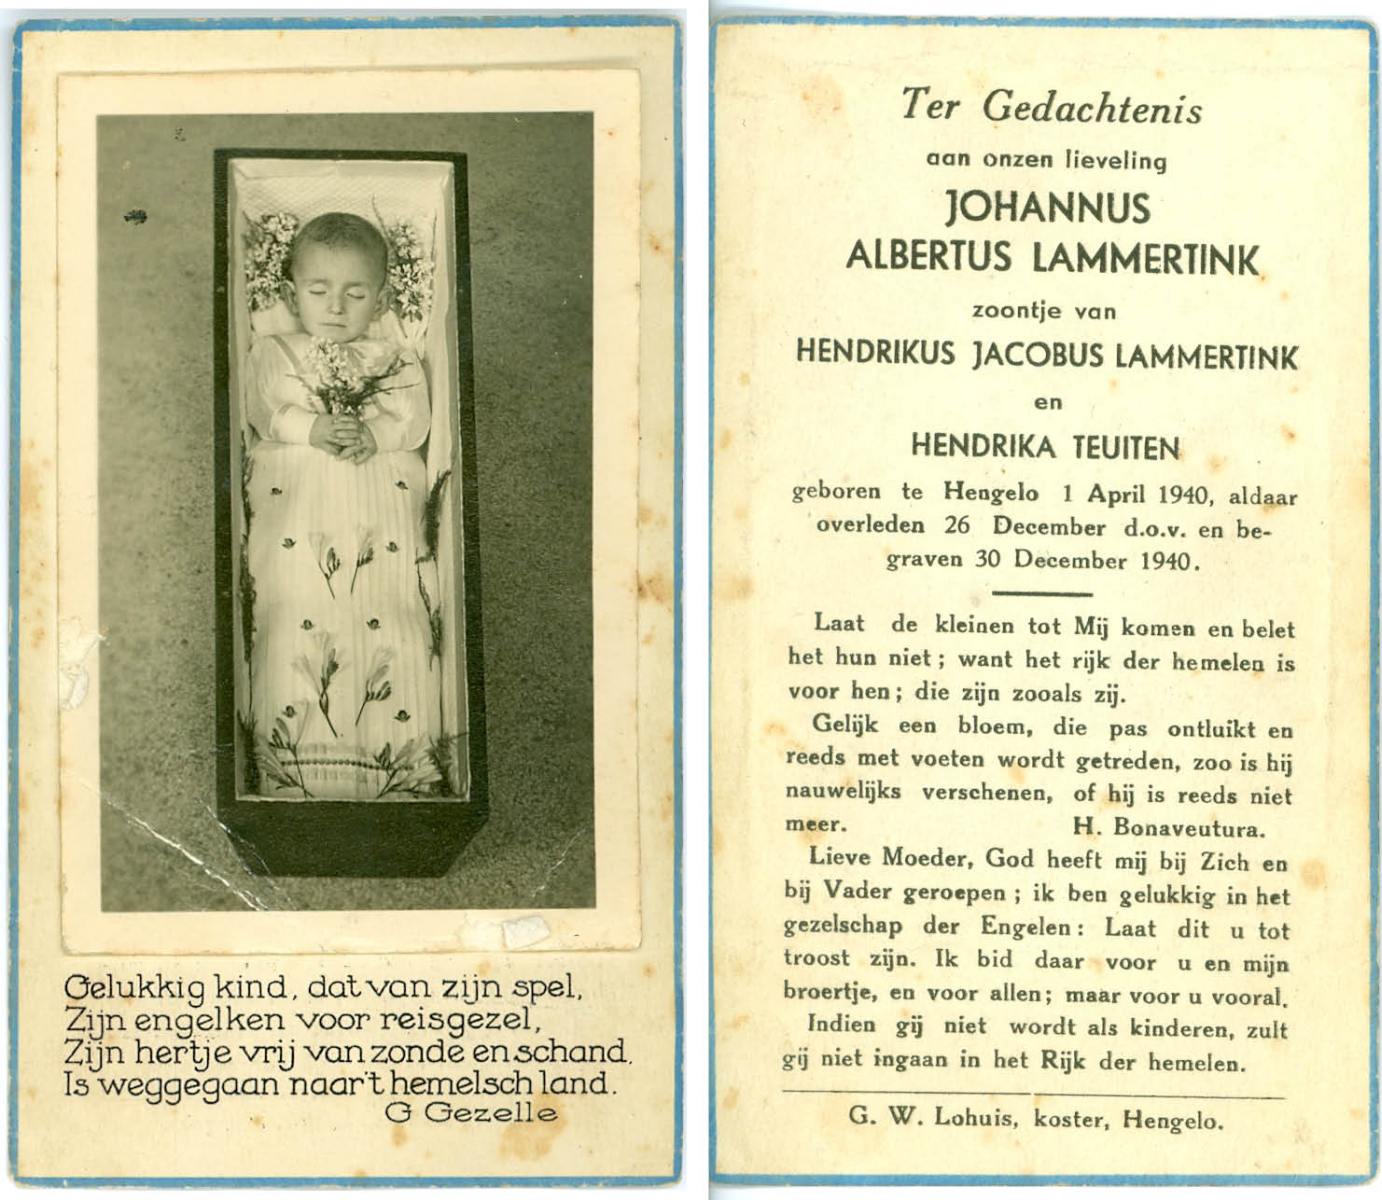 Gelukkig kind, dat van zijn spel,
Zijn engelken voor reisgezel,
Zijn hertje vrij van zonde en schand.
Is weggegaan naar't hemelsch land.
G Gezelle
Ter Gedachtenis
aan onzen lieveling
JOHANNUS
ALBERTUS LAMMERTINK
zoontje van
HENDRIKUS JACOBUS LAMMERTINK
en
HENDRIKA TEUITEN
geboren te Hengelo 1 April 1940, aldaar
overleden 26 December d.o.v. en be-
graven 30 December 1940.
Laat de kleinen tot Mij komen en belet
het hun niet; want het rijk der hemelen is
voor hen; die zijn zooals zij.
Gelijk een bloem, die pas ontluikt en
reeds met voeten wordt getreden, zoo is hij
nauwelijks verschenen, of hij is reeds niet
meer. H. Bonaveutura.
Lieve Moeder, God heeft mij bij Zich en
bij Vader geroepen; ik ben gelukkig in het
gezelschap der Engelen: Laat dit u tot
troost zijn. Ik bid daar voor u en mijn
broertje, en voor allen; maar voor u vooral.
Indien gij niet wordt als kinderen, zult
gij niet ingaan in het Rijk der hemelen.
G. W. Lohuis, koster, Hengelo.